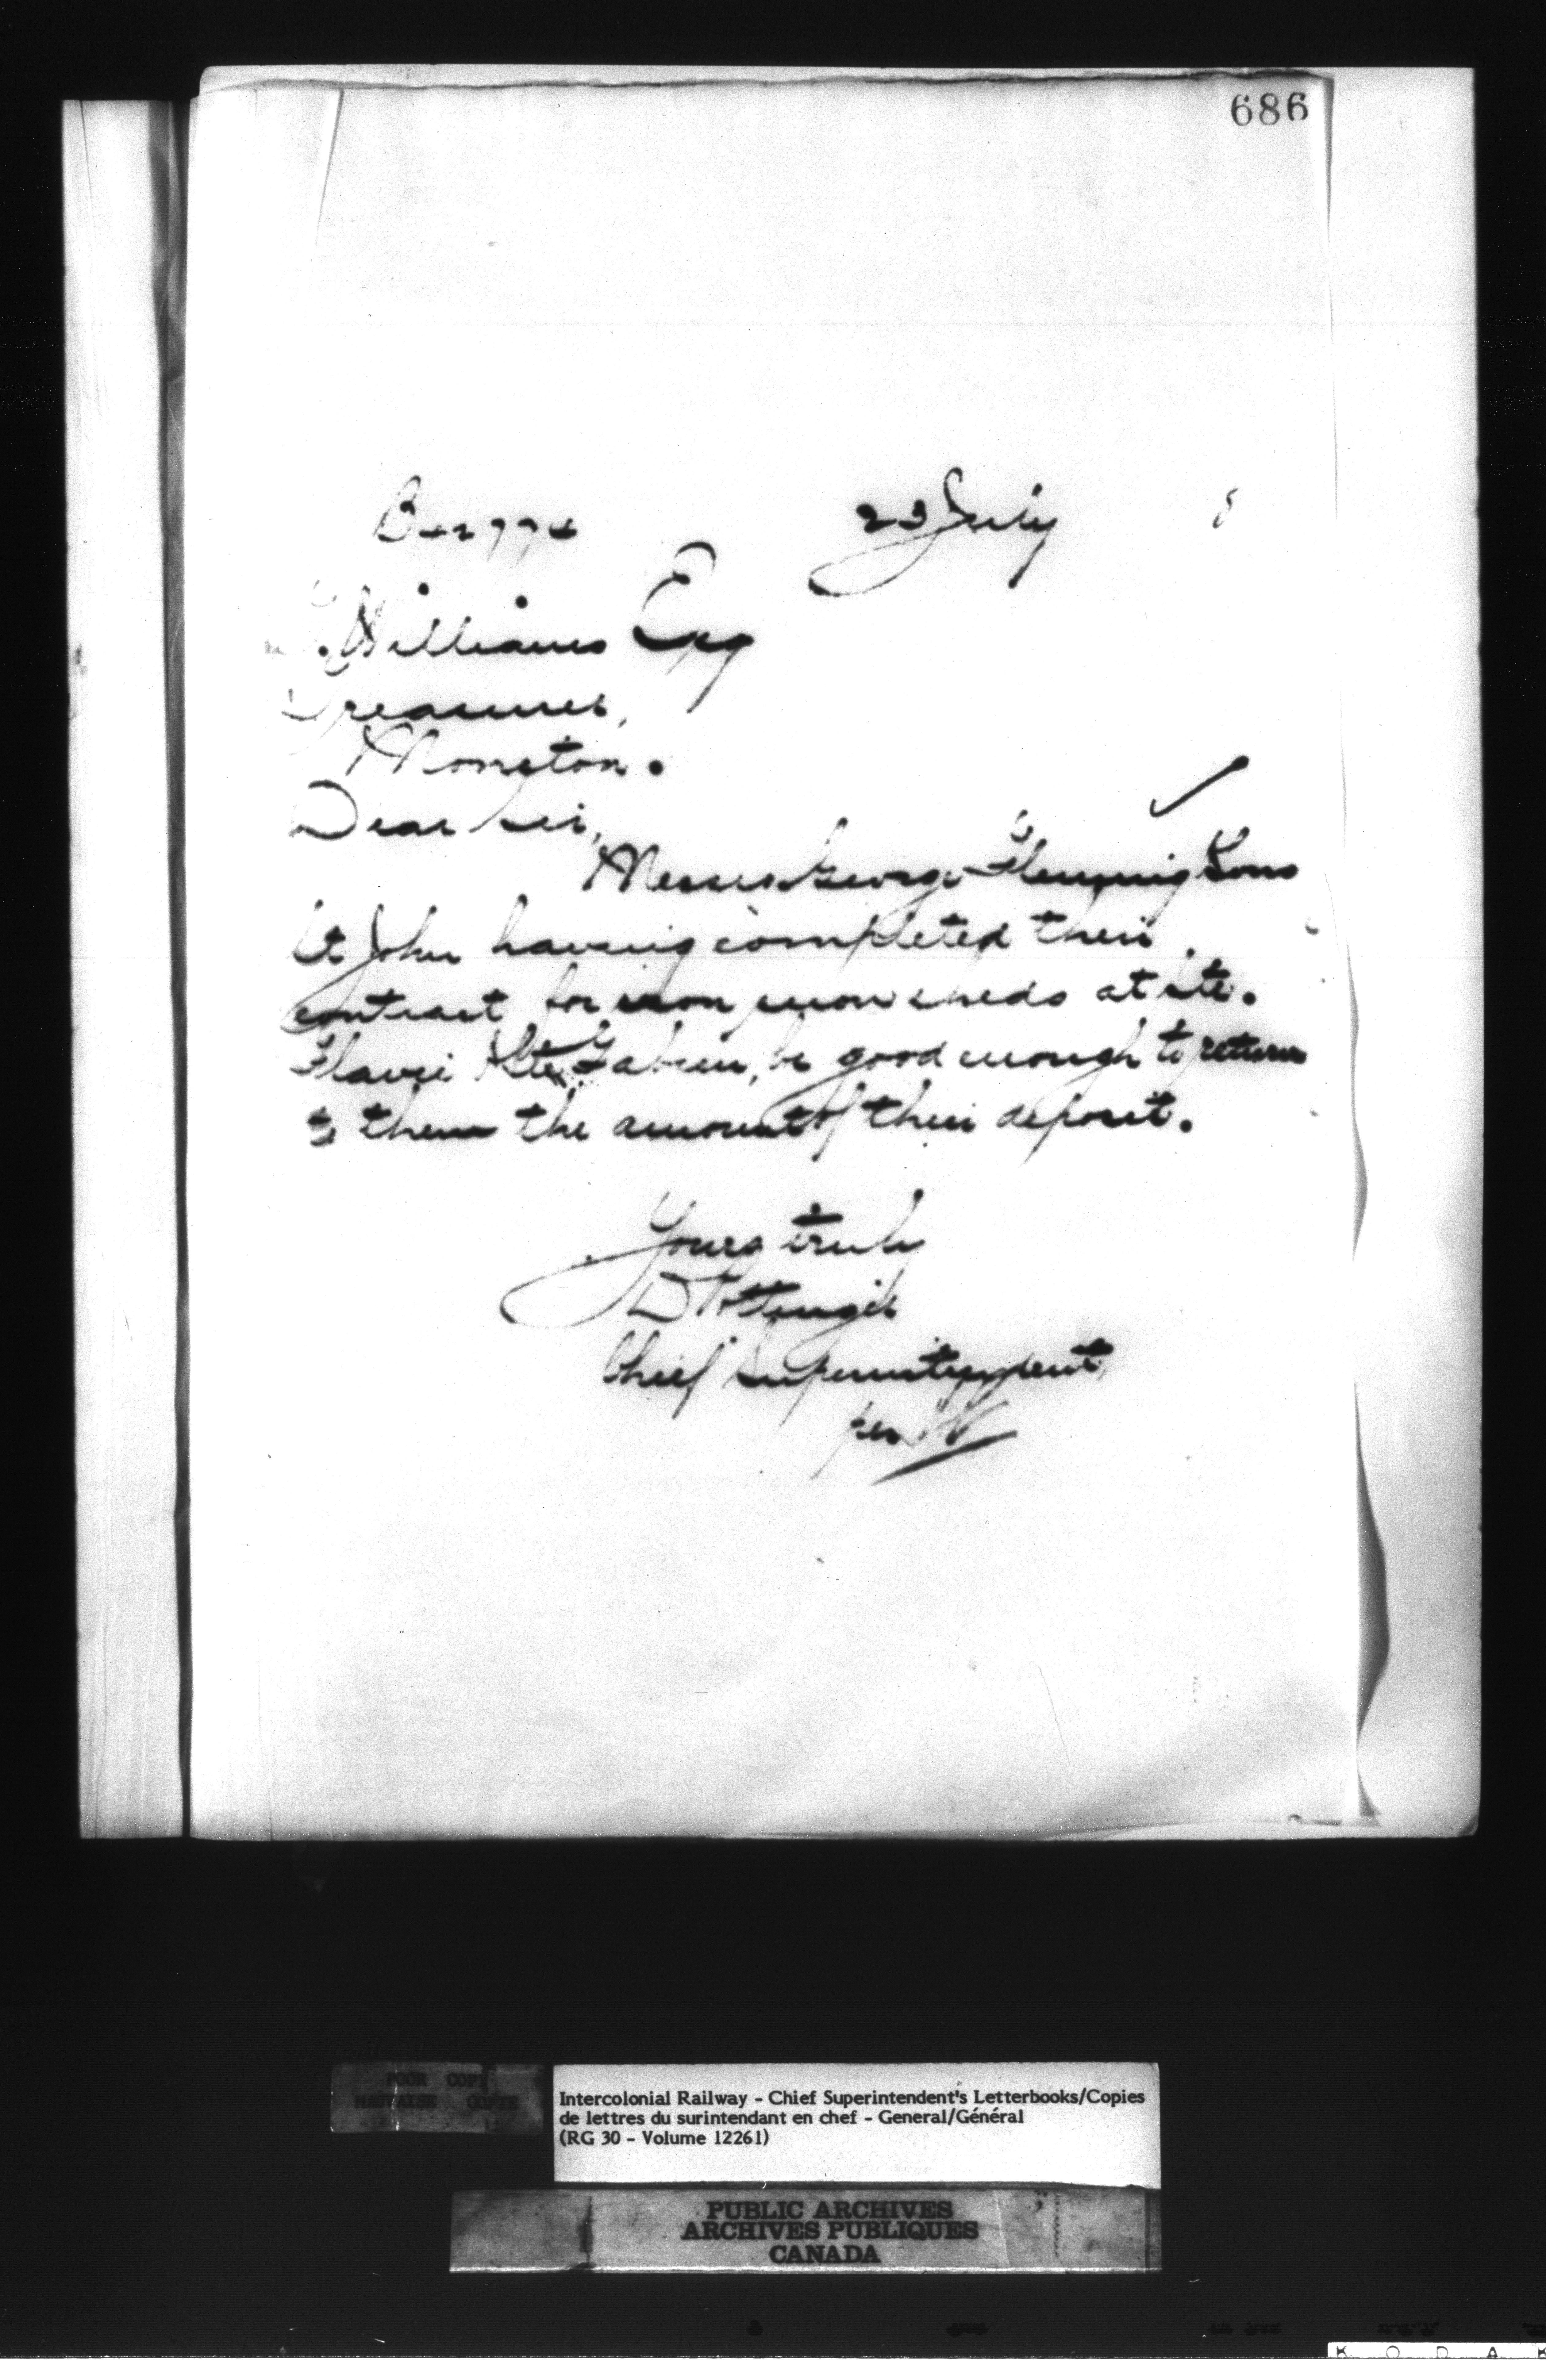 686
23 July 8
Williams Esq
Treasurer,
Moncton.
Dear Sir,
Messrs George Fleming & Sons
St John having completed their
contract for iron snow sheds at Ste.
Flavie & Ste Fabien, be good enough to return
to them the amount of their deposit.
Yours truly
D Pottinger
Chief Superintendent
per
POOR COPY
MAUVAISE COPIE
Intercolonial Railway - Chief Superintendent's Letterbooks/Copies
de lettres du surintendant en chef - General/Général
(RG 30 - Volume 12261)
PUBLIC ARCHIVES
ARCHIVES PUBLIQUES
CANADA
K O D A K